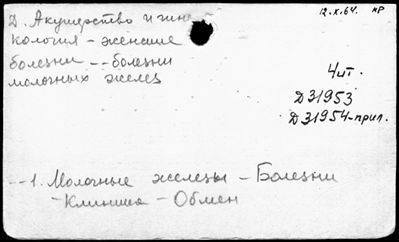 Д. Акушерство и гине
кология - женские
болезни -- болезни
молочных желез
12.X.64. НР
Чит.
Д31953
Д31954-прил.
--1. Молочные железы - Болезни
- Клиника - Обмен